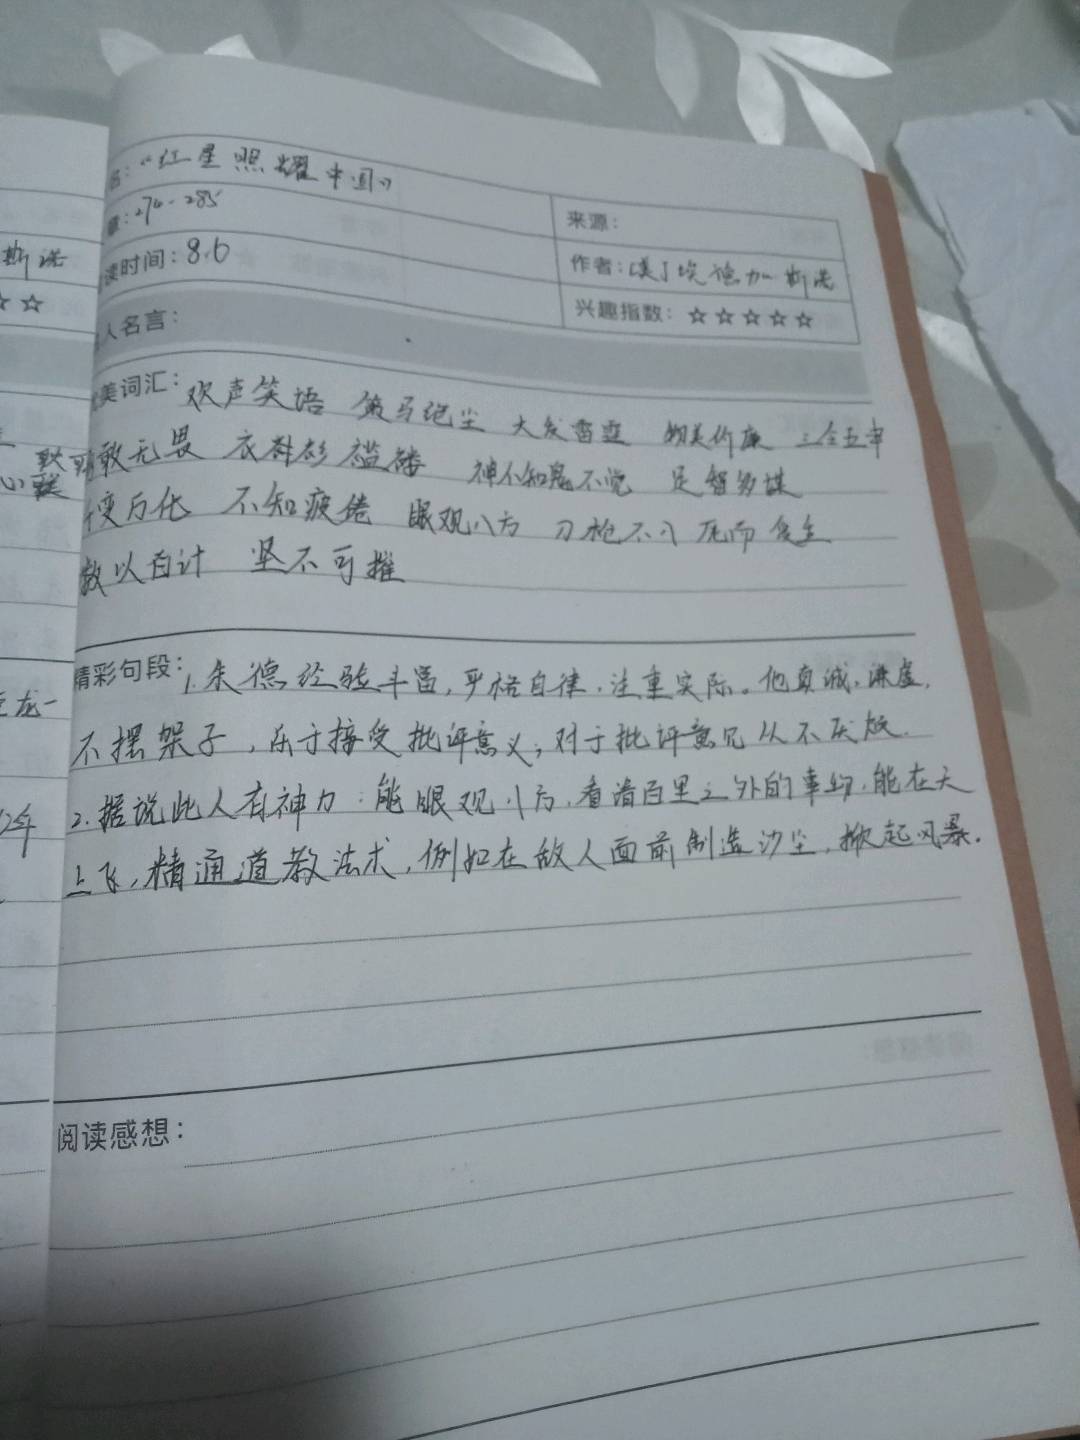 名:《红星照耀中国》
章:274-285
来源:
读时间:8.6
作者:[美]埃德加·斯诺
兴趣指数:☆☆☆☆☆
人名言:
美词汇:欢声笑语 策马绝尘 大发雷霆 物美价廉 三令五申
勇敢无畏 衣衫褴褛 神不知鬼不觉 足智多谋
千变万化 不知疲倦 眼观八方 刀枪不入 死而复生
数以百计 坚不可摧
精彩句段:1.朱德经验丰富,严格自律,注重实际。他真诚,谦虚,
不摆架子,乐于接受批评意义;对于批评意见从不厌烦.
2.据说此人有神力:能眼观八方,看清百里之外的事物,能在天
上飞,精通道教法术,例如在敌人面前制造沙尘,掀起风暴.
阅读感想:
斯诺
☆☆
龙一